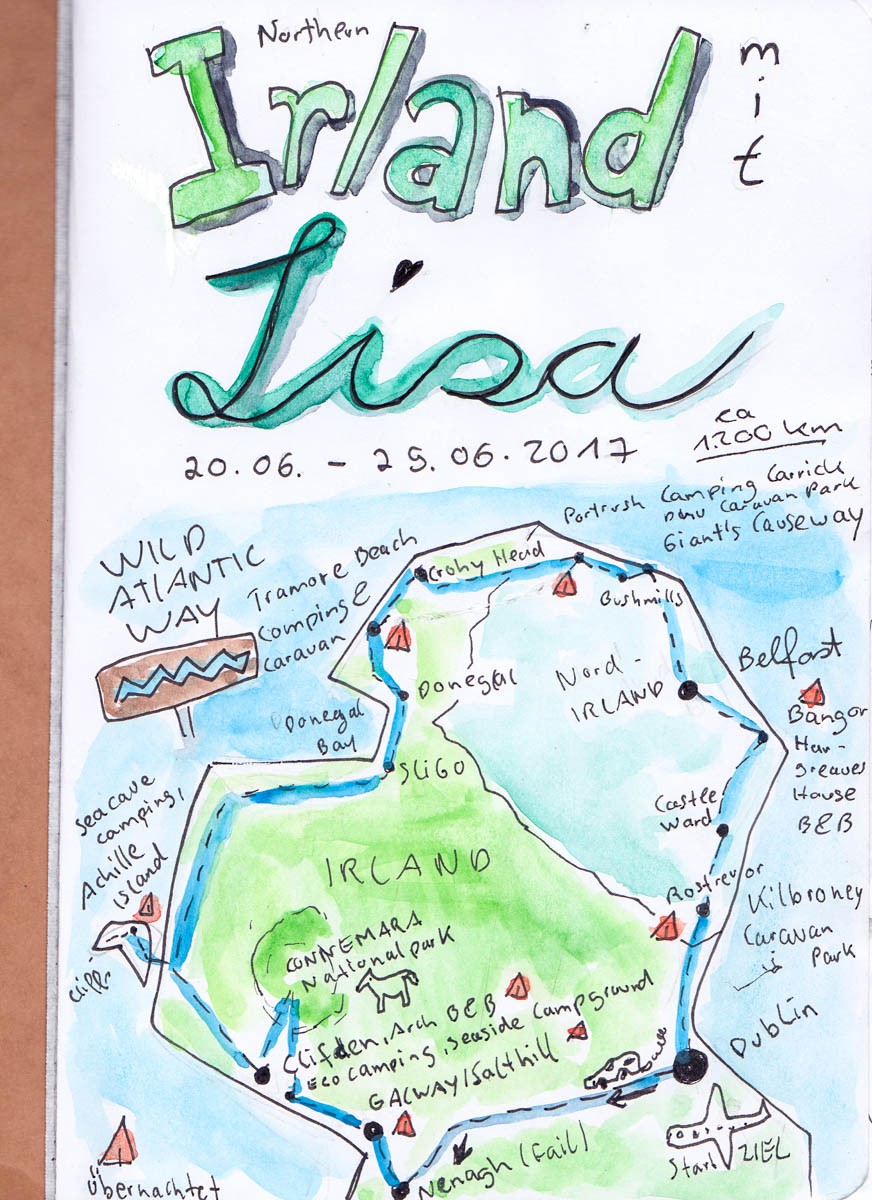 Northern
Irland
mit
Lisa
20.06. - 25.06.2017
ca
1.200 km
WILD
ATLANTIC
WAY
Tramore Beach
Camping &
Caravan
Crohy Head
Portrush
Camping Carrick
Dhu Caravan Park
Giant's Causeway
Bushmills
Belfast
Bangor
Har-
greaves
House
B&B
NORD-
IRLAND
Donegal
Donegal
Bay
SLIGO
Castle
Ward
seacave
camping,
Achille
Island
IRLAND
Rostrevor
Kilbroney
Caravan
Park
CONNEMARA
Nationalpark
Cliffs
Clifden, Arch B&B
Eco Camping, Seaside Campground
GALWAY/Salthill
Dublin
Nenagh (Fail)
Start/ZIEL
Übernachtet